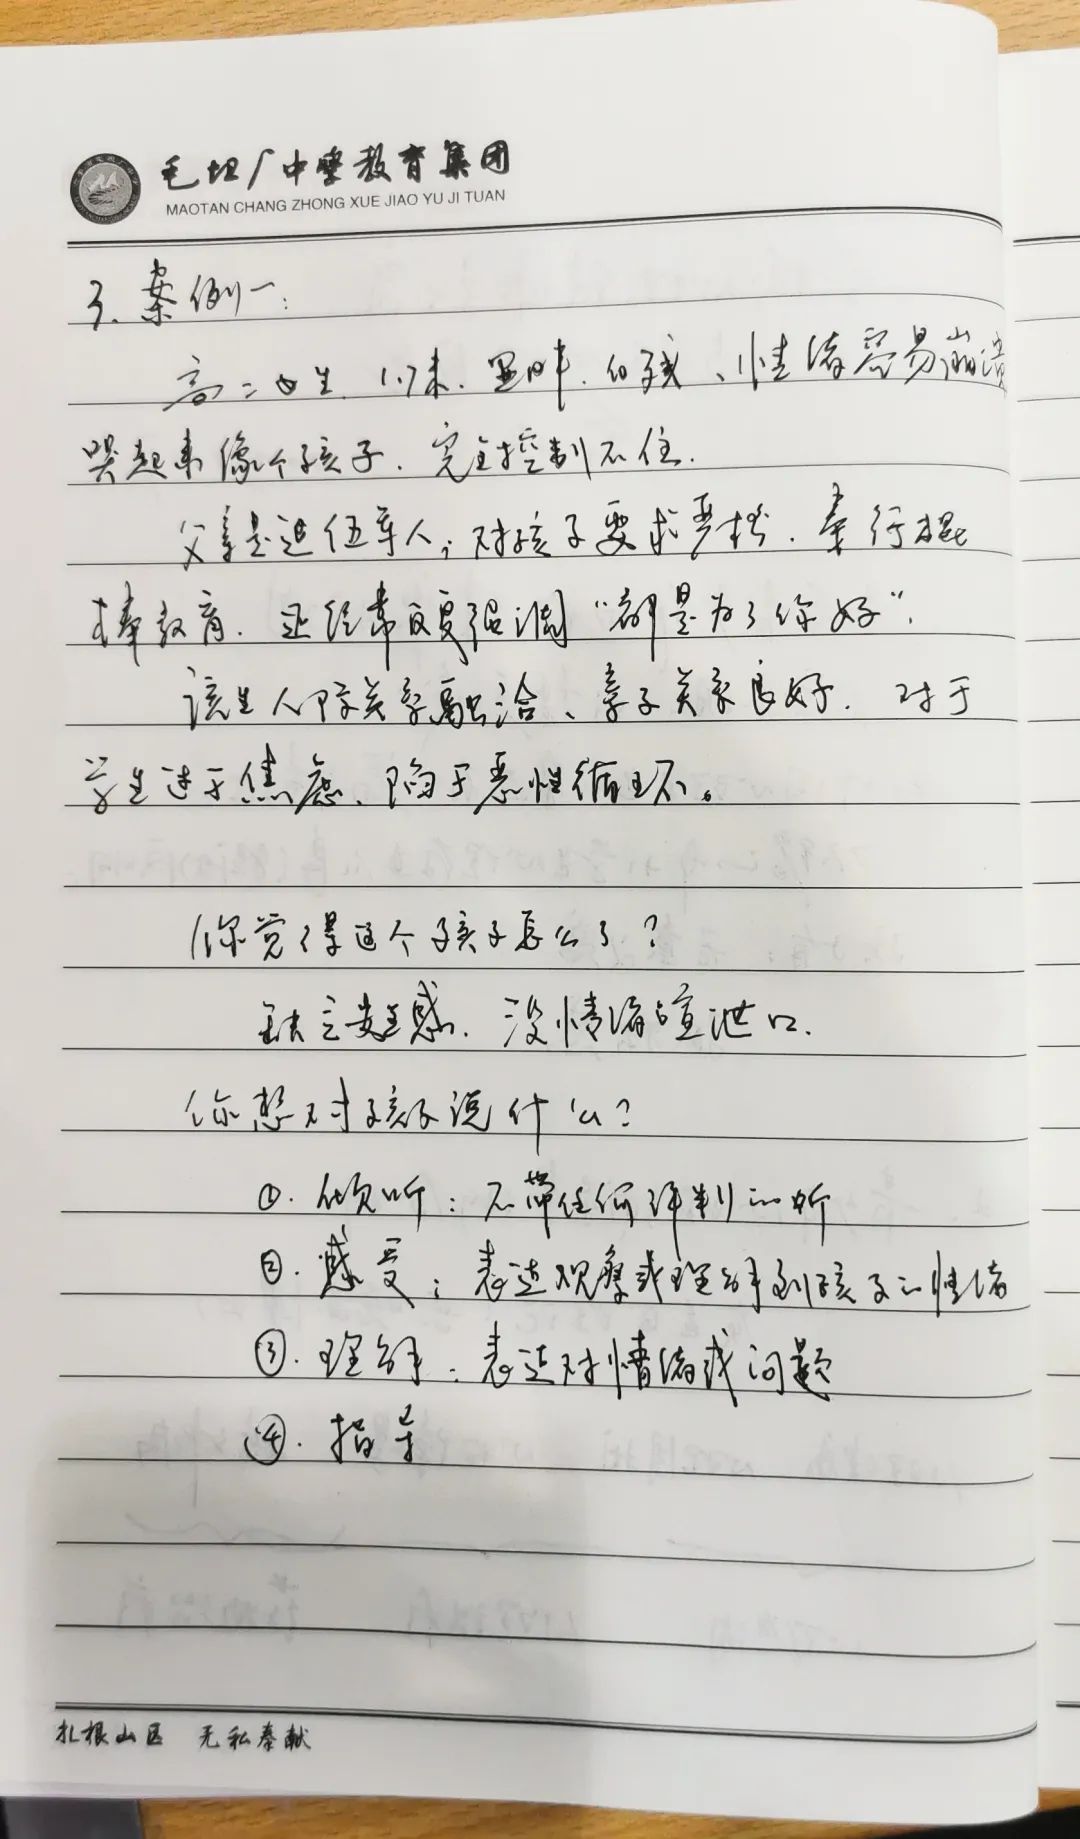 毛坦厂中学教育集团
MAOTAN CHANG ZHONG XUE JIAO YU JI TUAN
3. 案例一：
高二女生、1.7米、至味、自残、情绪容易崩溃
哭起来像个孩子、完全控制不住.
父亲是退伍军人，对孩子要求严格、奉行棍
棒教育、还经常反复强调“都是为了你好”.
该生人际关系融洽、亲子关系良好. 对于
学生过于焦虑、陷于恶性循环。
你觉得这个孩子怎么了？
缺乏安全感、没情绪宣泄口.
你想对孩子说什么？
①. 倾听：不带任何评判的听
②. 感受：表达观察或理解到孩子的情绪
③. 理解：表达对情绪或问题
④. 指导
扎根山区 无私奉献